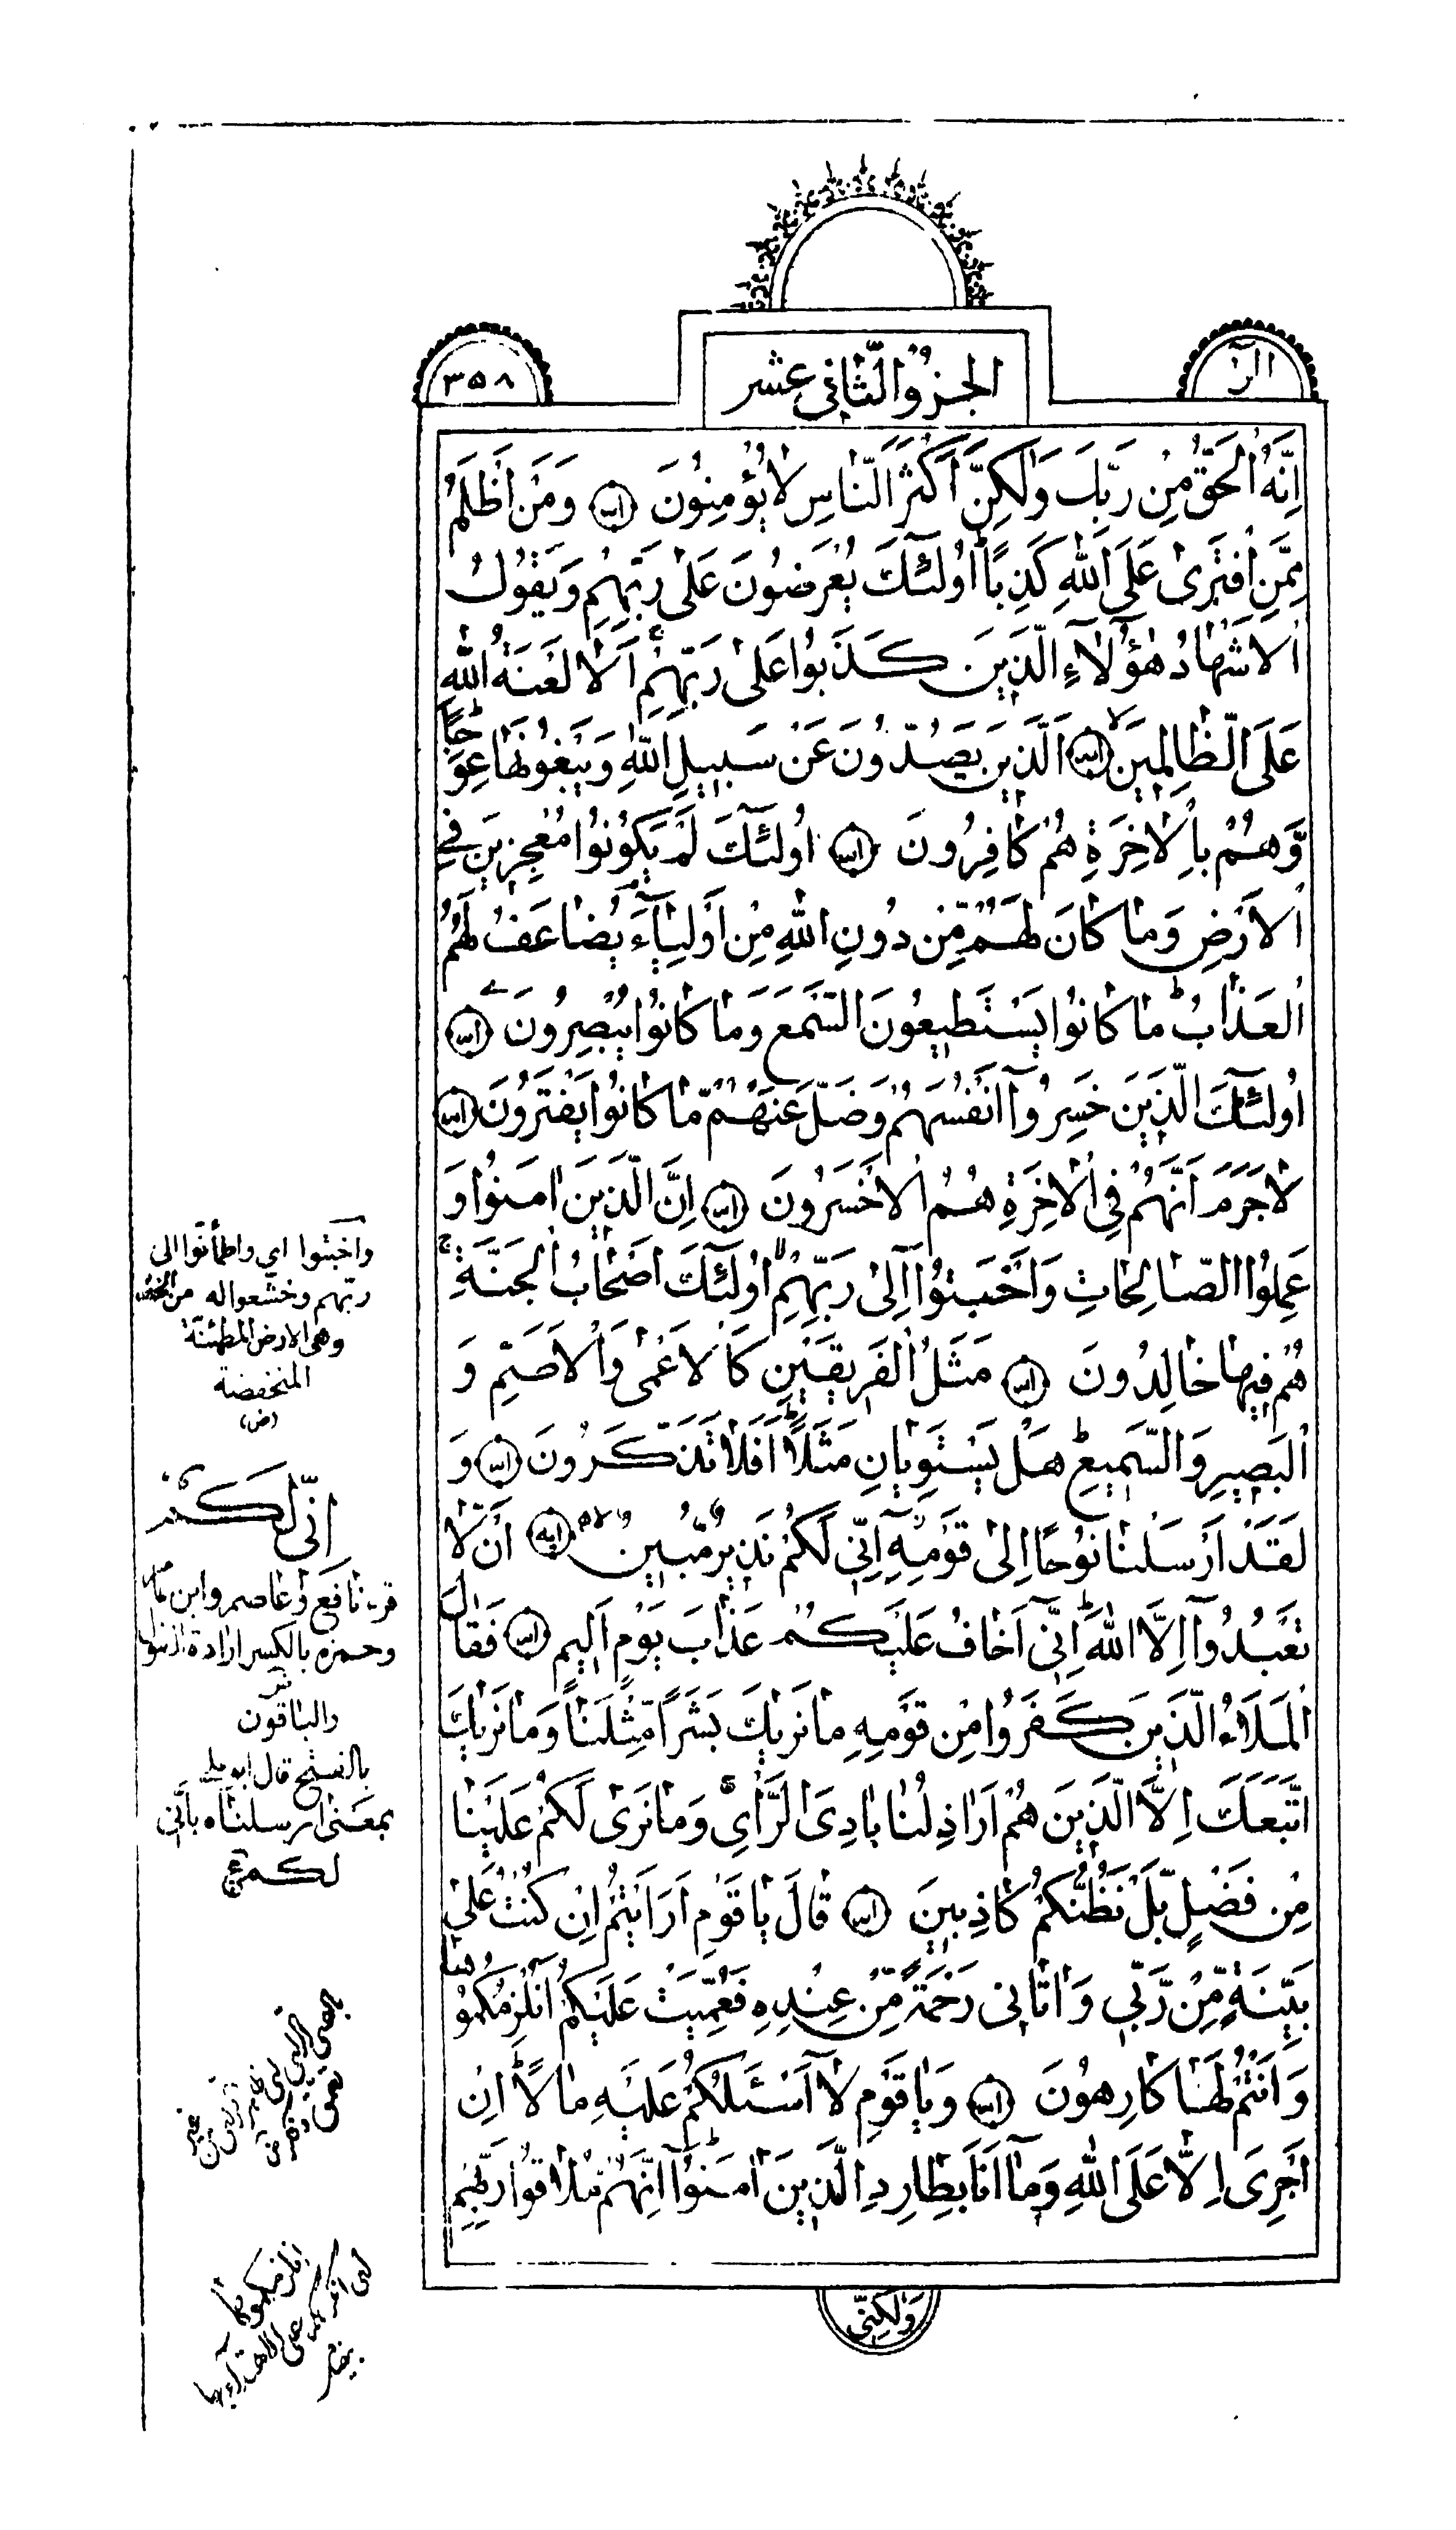 الٓرٰ
الجزؤ الثّانی عشر
۳۵۸
اِنَّهُ الْحَقُّ مِنْ رَبِّكَ وَلٰكِنَّ اَكْثَرَ النّاسِ لا يُؤْمِنُونَ وَمَنْ اَظْلَمُ
مِمَّنِ افْتَرٰى عَلَى اللهِ كَذِبًاؕ اُولٰٓئِكَ يُعْرَضُونَ عَلٰى رَبِّهِمْ وَيَقُولُ
الْاَشْهادُ هٰٓؤُلَآءِ الَّذِينَ كَذَبُوا عَلٰى رَبِّهِمْۚ اَلا لَعْنَةُ اللهِ
عَلَى الظّالِمِينَۙ اَلَّذِينَ يَصُدُّونَ عَنْ سَبِيلِ اللهِ وَيَبْغُونَها عِوَجًاؕ
وَّهُمْ بِالْاٰخِرَةِ هُمْ كافِرُونَ اُولٰٓئِكَ لَمْ يَكُونُوا مُعْجِزِينَ فِي
الْاَرْضِ وَما كانَ لَهُمْ مِّنْ دُونِ اللهِ مِنْ اَوْلِيٰٓاءَۘ يُضاعَفُ لَهُمُ
الْعَذابُؕ ما كانُوا يَسْتَطِيعُونَ السَّمْعَ وَما كانُوا يُبْصِرُونَ
اُولٰٓئِكَ الَّذِينَ خَسِرُوٓا اَنْفُسَهُمْ وَضَلَّ عَنْهُمْ مّا كانُوا يَفْتَرُونَ
لا جَرَمَ اَنَّهُمْ فِي الْاٰخِرَةِ هُمُ الْاَخْسَرُونَ اِنَّ الَّذِينَ اٰمَنُوا وَ
عَمِلُوا الصّالِحاتِ وَاَخْبَتُوٓا اِلٰى رَبِّهِمْۙ اُولٰٓئِكَ اَصْحابُ الْجَنَّةِۚ
هُمْ فِيها خالِدُونَ مَثَلُ الْفَرِيقَيْنِ كَالْاَعْمٰى وَالْاَصَمِّ وَ
الْبَصِيرِ وَالسَّمِيعِؕ هَلْ يَسْتَوِيانِ مَثَلًاؕ اَفَلا تَذَكَّرُونَ وَ
لَقَدْ اَرْسَلْنا نُوحًا اِلٰى قَوْمِهٓ اِنّي لَكُمْ نَذِيرٌ مُّبِينٌۙ اَنْ لا
تَعْبُدُوٓا اِلَّا اللهَؕ اِنّيٓ اَخافُ عَلَيْكُمْ عَذابَ يَوْمٍ اَلِيمٍ فَقالَ
الْمَلَاُ الَّذِينَ كَفَرُوا مِنْ قَوْمِهِ ما نَرٰيكَ بَشَرًا مِّثْلَنا وَما نَرٰيكَ
اتَّبَعَكَ اِلَّا الَّذِينَ هُمْ اَراذِلُنا بادِيَ الرَّاْيِۚ وَما نَرٰى لَكُمْ عَلَيْنا
مِنْ فَضْلٍ بَلْ نَظُنُّكُمْ كاذِبِينَ قالَ يا قَوْمِ اَرَاَيْتُمْ اِنْ كُنْتُ عَلٰى
بَيِّنَةٍ مِّنْ رَّبّي وَاٰتاني رَحْمَةً مِّنْ عِنْدِهِ فَعُمِّيَتْ عَلَيْكُمْ اَنُلْزِمُكُمُوها
وَاَنْتُمْ لَها كارِهُونَ وَيا قَوْمِ لآ اَسْئَلُكُمْ عَلَيْهِ مالًاؕ اِنْ
اَجْرِيَ اِلّا عَلَى اللهِ وَمآ اَنَا بِطارِدِ الَّذِينَ اٰمَنُواؕ اِنَّهُمْ مُلاقُوا رَبِّهِمْ
وَلٰكِنّي
واخبتوا اي واطمأنّوا الى
ربّهم وخشعوا له من الخبت
وهى الارض المطمئنّة
المنخفضة
(ض)
انّي لكم
قرء نافع وعاصم وابن عامر
وحمزه بالكسر ارادة
والباقون
بالفتح قال ابو علي
بمعنى ارسلناه بأنّي
لكم
انلزمكموها
على الاهتداء بها